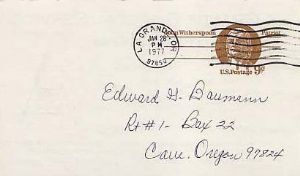 LA GRANDE, OR
JAN 28
PM
1977
97850
John Witherspoon Patriot
U.S. Postage 9¢
Edward G. Baumann
Rt #1 - Box 22
Cove, Oregon 97824